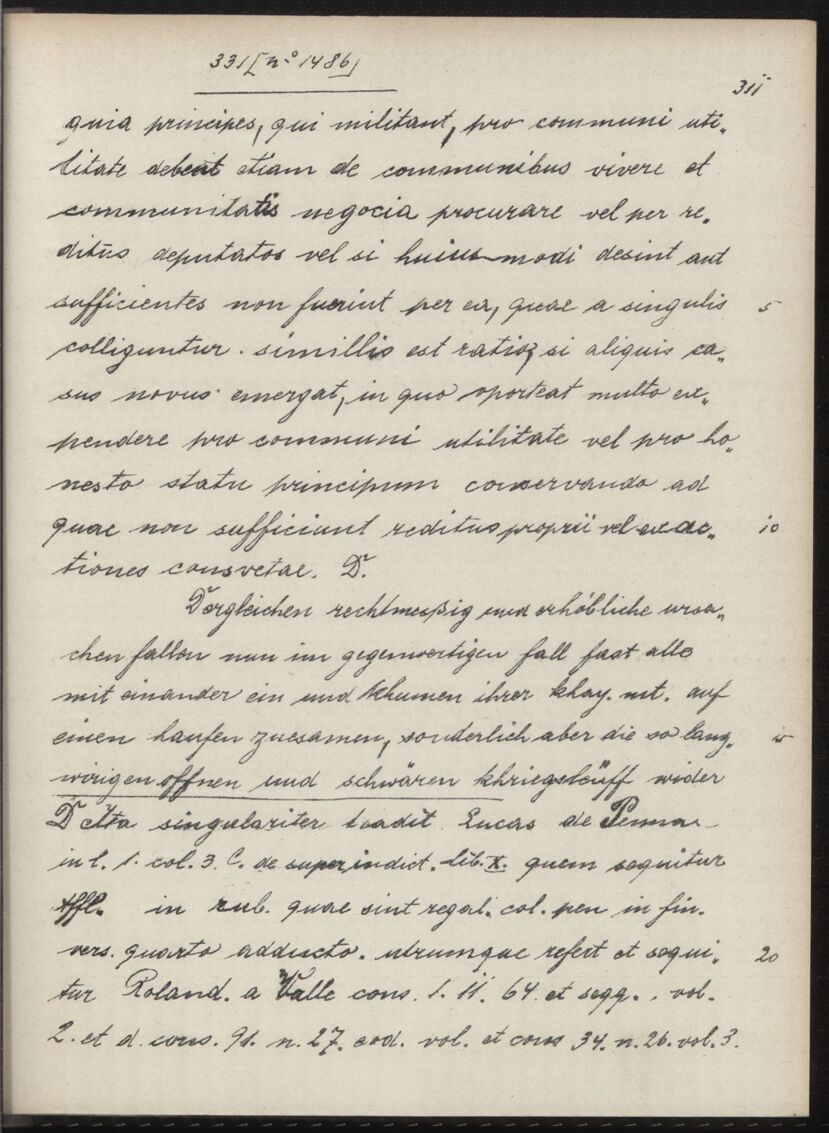 331 [nº 1486]
311
quia principes, qui militant, pro communi uti„
litate debent etiam de communibus vivere et
communitatis negocia procurare vel per re„
ditus deputatos vel si huiusmodi desint aut
sufficientes non fuerint per ea, quae a singulis 5
colliguntur. simillis est ratio, si aliquis ca„
sus novus emergat, in quo oporteat multo ex„
pendere pro communi utilitate vel pro ho„
nesto statu principum conservando ad
quae non sufficiunt reditus proprii vel exac„ 10
tiones consvetae. D.
Dergleichen rechtmeszig und erhöbliche ursa„
chen fallen nun im gegenwertigen fall fast alle
mit einander ein und khumen ihrer khay. mt. auf
einen haufen zuesamen, sonderlich aber die so lang„ 15
wirigen offnen und schwären khriegsleüff wider
D Ita singulariter tradit Lucas de Penna
in l. 1. col. 3. C. de superindict. lib. X. quem sequitur
Affl. in rub. quae sint regal. col. pen in fin.
vers. quarto adducto. utrumque refert et sequi„ 20
tur Roland. a Valle cons. 1. 11. 64. et segg., vol.
2. et d. cons. 91. n. 27. eod. vol. et cons 34. n. 26. vol. 3.